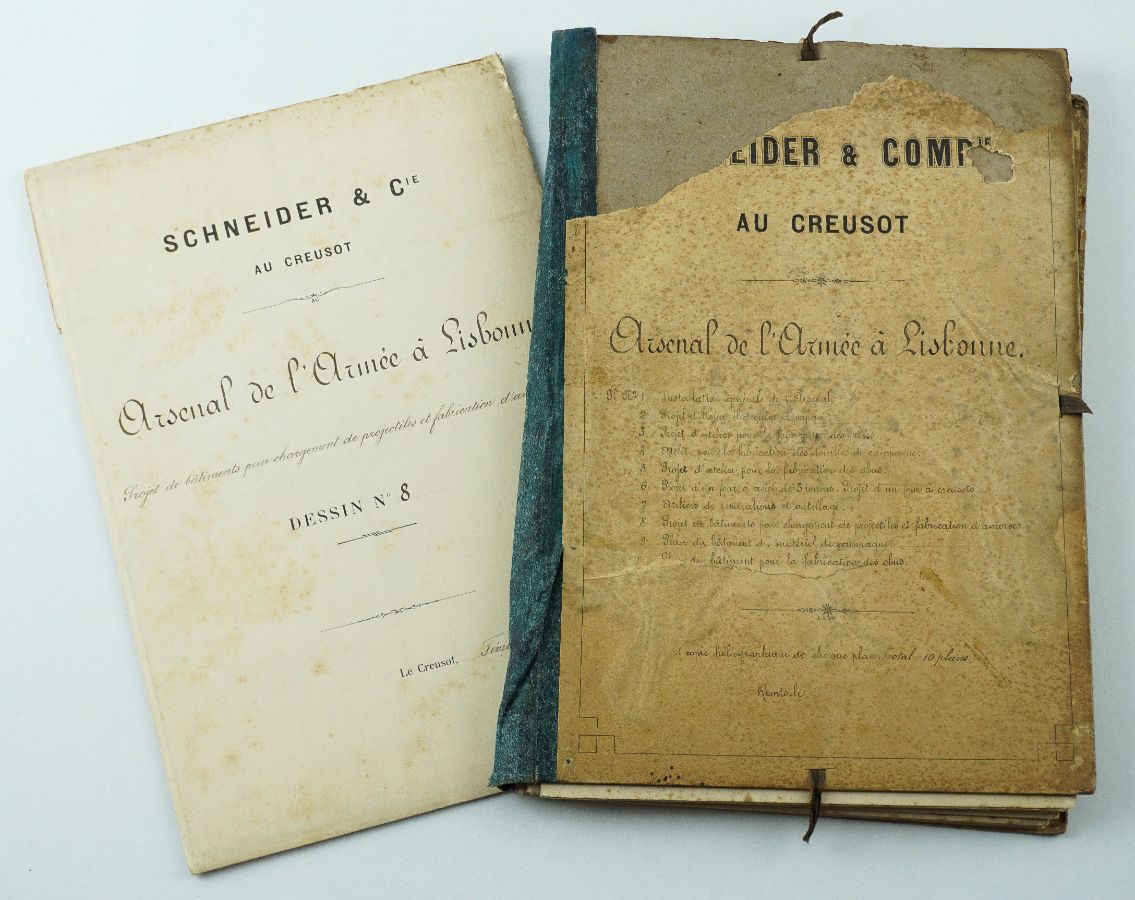 SCHNEIDER & CIE
AU CREUSOT
Arsenal de l'Armée à Lisbonne
Projet de bâtiments pour chargement de projectiles et fabrication d'am
DESSIN No 8
Le Creusot, Févr
EIDER & COMPIE
AU CREUSOT
Arsenal de l'Armée à Lisbonne.
Nos 1 Installation générale de l'Arsenal
2 Projet d'
3 Projet d'atelier pour la fabrication des
4 Atelier pour la fabrication des douilles de campagne.
5 Projet d'atelier pour la fabrication des obus.
6 Projet d'un four à acier de 5 tonnes. Projet d'un four à creusets.
7 Ateliers de réparations et outillage.
8 Projet de bâtiments pour chargement de projectiles et fabrication d'amorces.
9 Plan du bâtiment du matériel de campagne.
du bâtiment pour la fabrication des obus.
1 copie héliographique de chaque plan. Total 10 plans.